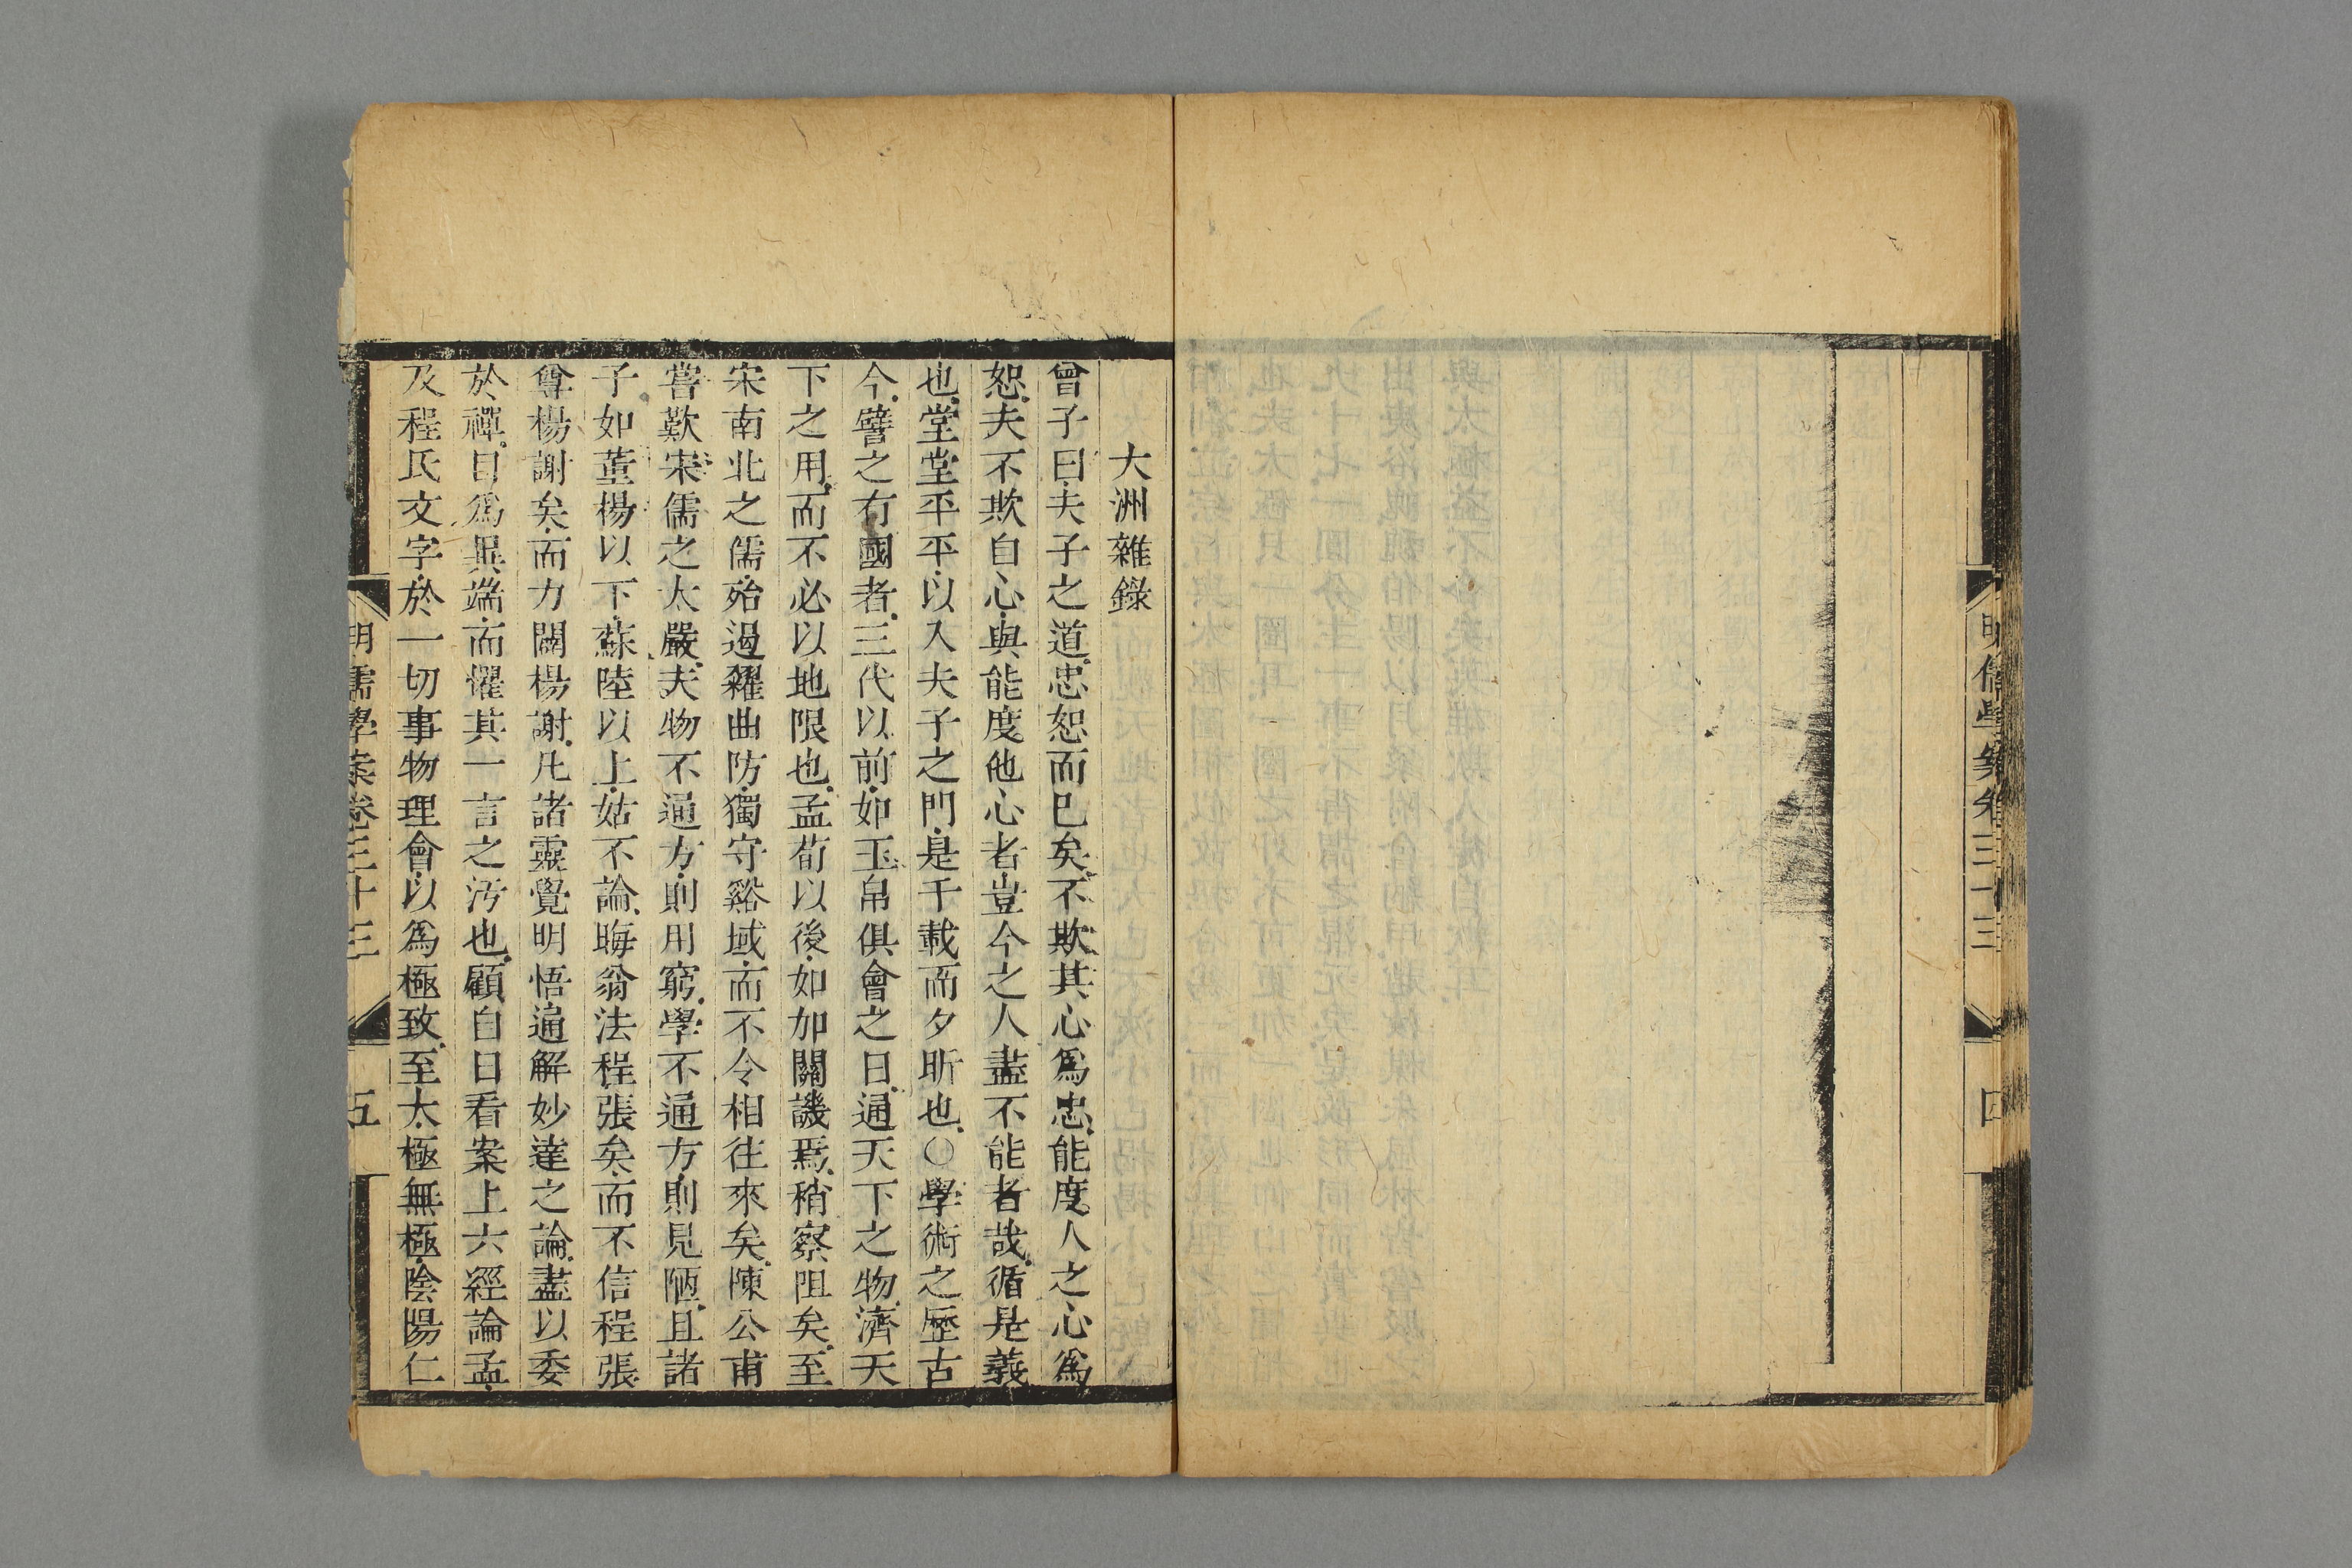 明儒學案卷三十三
四
大洲雜錄
曾子曰夫子之道忠恕而已矣不欺其心爲忠能度人之心爲
恕夫不欺自心與能度他心者豈今之人盡不能者哉循是義
也堂堂平平以入夫子之門是千載而夕昕也○學術之歷古
今譬之有國者三代以前如玉帛俱會之日通天下之物濟天
下之用而不必以地限也孟荀以後如加關譏焉稍察阻矣至
宋南北之儒殆遏糴曲防獨守谿域而不令相往來矣陳公甫
嘗歎宋儒之太嚴夫物不通方則用窮學不通方則見陋且諸
子如董楊以下蘇陸以上姑不論晦翁法程張矣而不信程張
尊楊謝矣而力闢楊謝凡諸靈覺明悟通解妙達之論盡以委
於禪目爲異端而懼其一言之汚也顧自日看案上六經論孟
及程氏文字於一切事物理會以爲極致至太極無極陰陽仁
明儒學案卷三十三
五